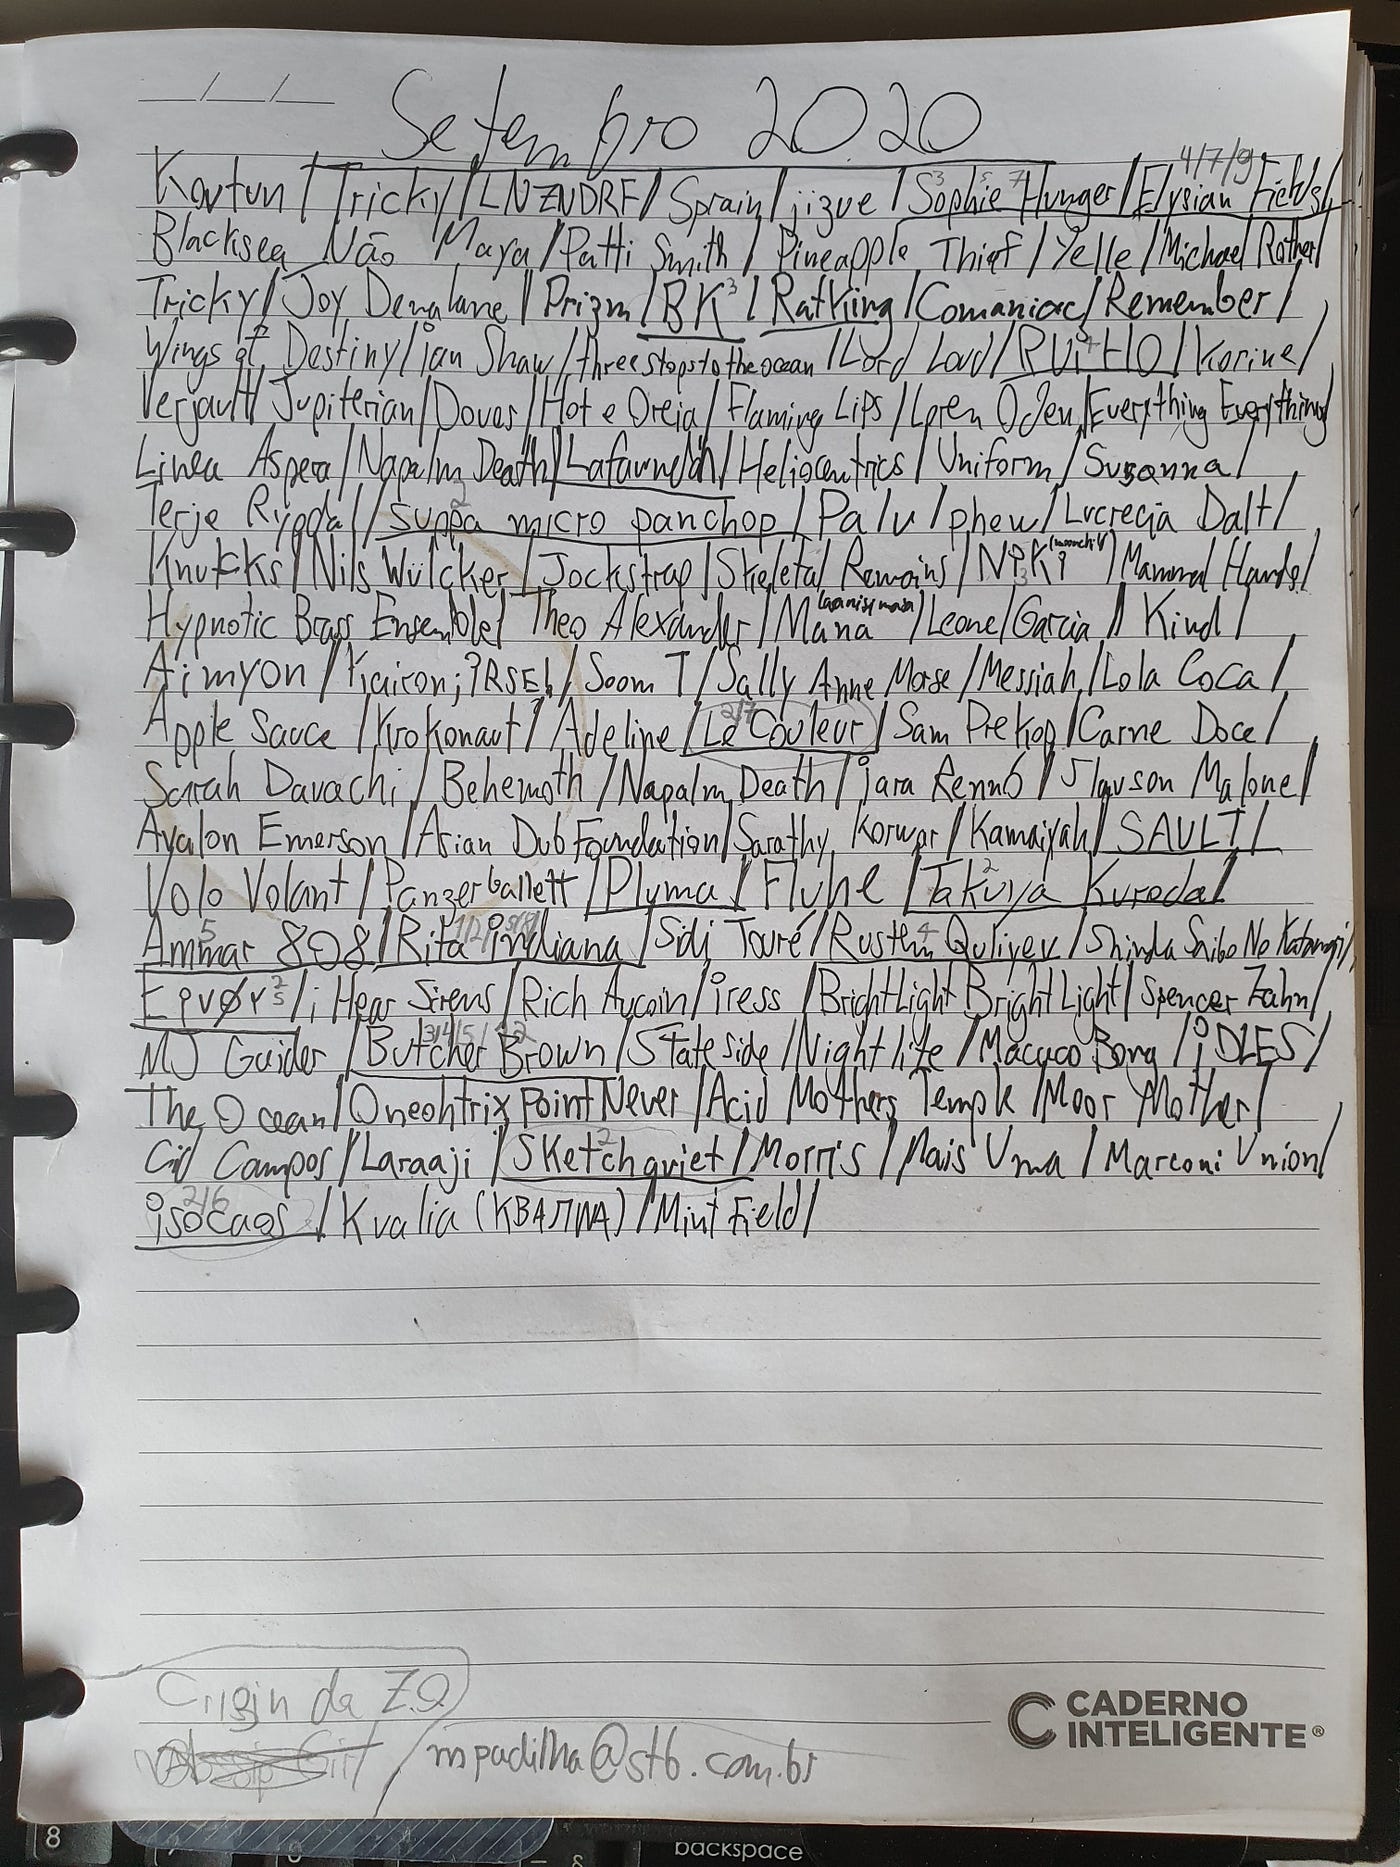 Setembro 2020
4/7/9
Kovtun / Tricky / LNZNDRF / Sprain / jizue / Sophie Hunger / Elysian Fields /
Blacksea Não Maya / Patti Smith / Pineapple Thief / Yelle / Michael Rother /
Tricky / Joy Denalane / Prizm / BK 3 / Ratking / Comaniac / Remember /
Wings of Destiny / ian Shaw / three stops to the ocean / Lord Loud / / Korine /
Verjault / Jupiterian / Doves / Hot e Oreia / Flaming Lips / Loren Oden / Everything Everything
Linea Aspera / Napalm Death / Lafawndah / Heliocentrics / Uniform / Susanna /
Terje Rypdal / suppa micro panchop / Palu / phew / Lucrecia Dalt /
Knucks / Nils Wülcker / Jockstrap / Skeletal Remains / / Mammal Hands /
Hypnotic Brass Ensemble / Theo Alexander / Mana / Leone / Garcia / Kind /
Aimyon / Kairon; IRSE! / Soom T / Sally Anne Morse / Messiah / Lola Coca /
Apple Sauce / Krokonaut / Adeline / Le Couleur / Sam Prekop / Carne Doce /
Sarah Davachi / Behemoth / Napalm Death / iara Rennó / Slauson Malone /
Avalon Emerson / Asian Dub Foundation / Sarathy Korwar / Kamaiyah / SAULT /
Volo Volant / Panzerballett / Plyma / Fluhe / Takuya Kuroda /
Ammar 808 / Rita indiana / Sidi Touré / Rustem Quliyev / Shinda Saibo No Katamari /
/ i Hear Sirens / Rich Aucoin / iress / Bright Light Bright Light / Spencer Zahn /
MJ Guider / Butcher Brown / State Side / Night life / Macaco Bong / iDLES /
The Ocean / Oneohtrix Point Never / Acid Mothers Temple / Moor Mother /
Cid Campos / Laraaji / Sketchquiet / Morris / Mais Uma / Marconi Union /
isocaos / Kvalia (КВАЛИА) / Mint Field /
CADERNO
INTELIGENTE®
da Z.O
/ mpadilha@stb.com.br
8
backspace